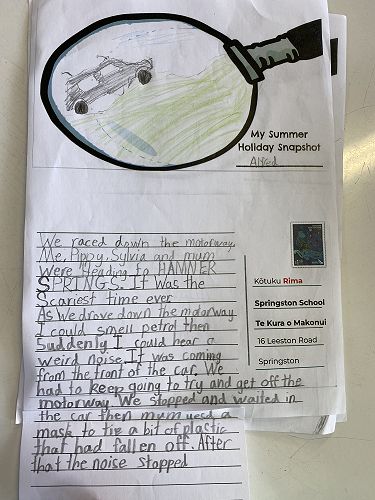 My Summer
Holiday Snapshot
Alfred
We raced down the motorway.
Me, Pippy, Sylvia and mum
were Heading to HANMER
SPRINGS. It Was the
Scariest time ever
As We drove down the motorway
I could smell petrol then
Suddenly I could hear a
weird noise. It was coming
from the front of the car. We
had to keep going to try and get off the
motorway. We stopped and waited in
the car then mum used a
mask to tie a bit of plastic
that had fallen off. After
that the noise stopped
Kōtuku Rima
Springston School
Te Kura o Makonui
16 Leeston Road
Springston